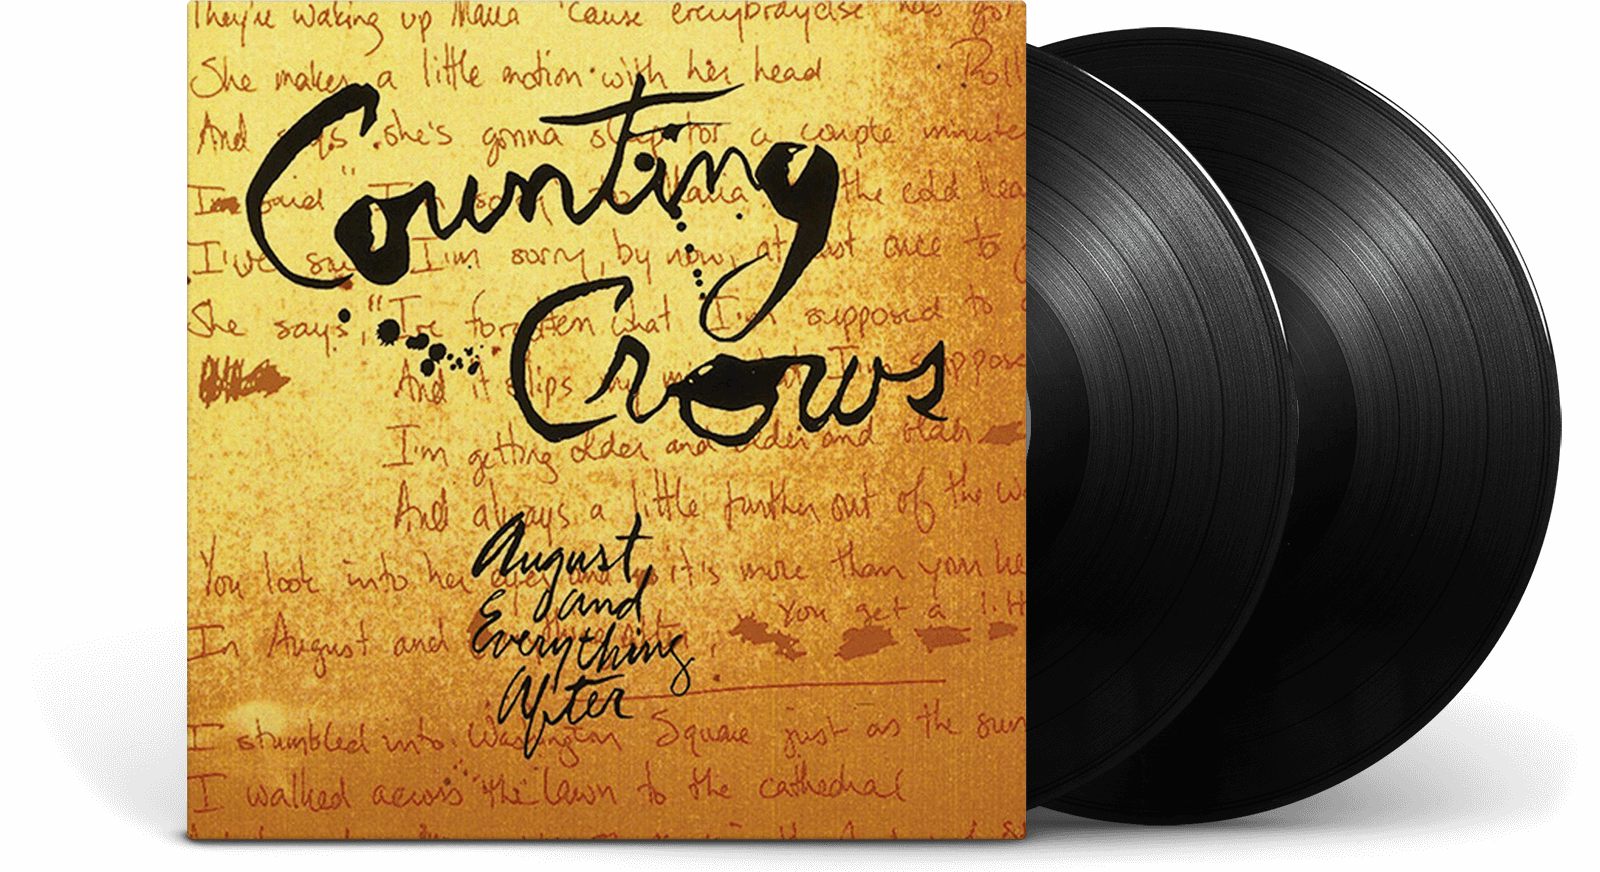 They're waking up Maria 'cause everybody else has got
She makes a little motion with her head
Roll
And says she's gonna sleep for a couple minute
I'm said "I'm sorry to Maria the cold hea
I've said I'm sorry, by now, at last once to
She says, "I've forgotten what I'm supposed to
And it slips my I'm suppose
I'm getting older and older and older
And always a little further out of the wa
You look into her eyes and it's more than you he
You get a litt
In August and
I stumbled into Washington Square just as the sun
I walked across the lawn to the cathedral
Counting
Crows
August
and
Everything
After